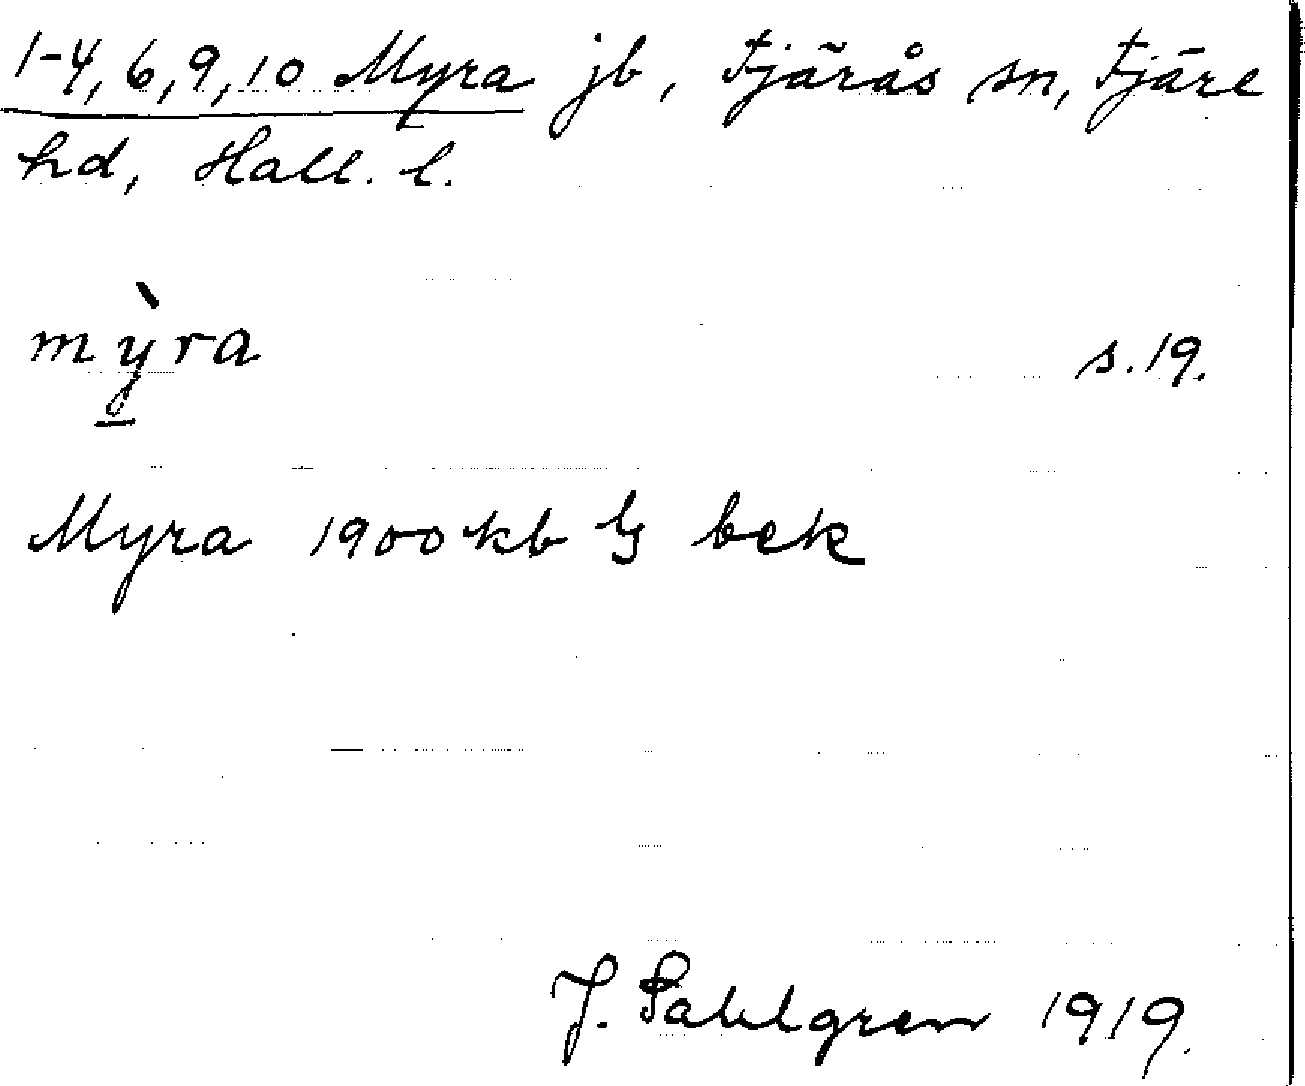 1-4, 6, 9, 10 Myra jb, Fjärås sn, Fjäre
hd, Hall. l.
mỳra s. 19.
Myra 1900 kb bek
J. Sahlgren 1919.